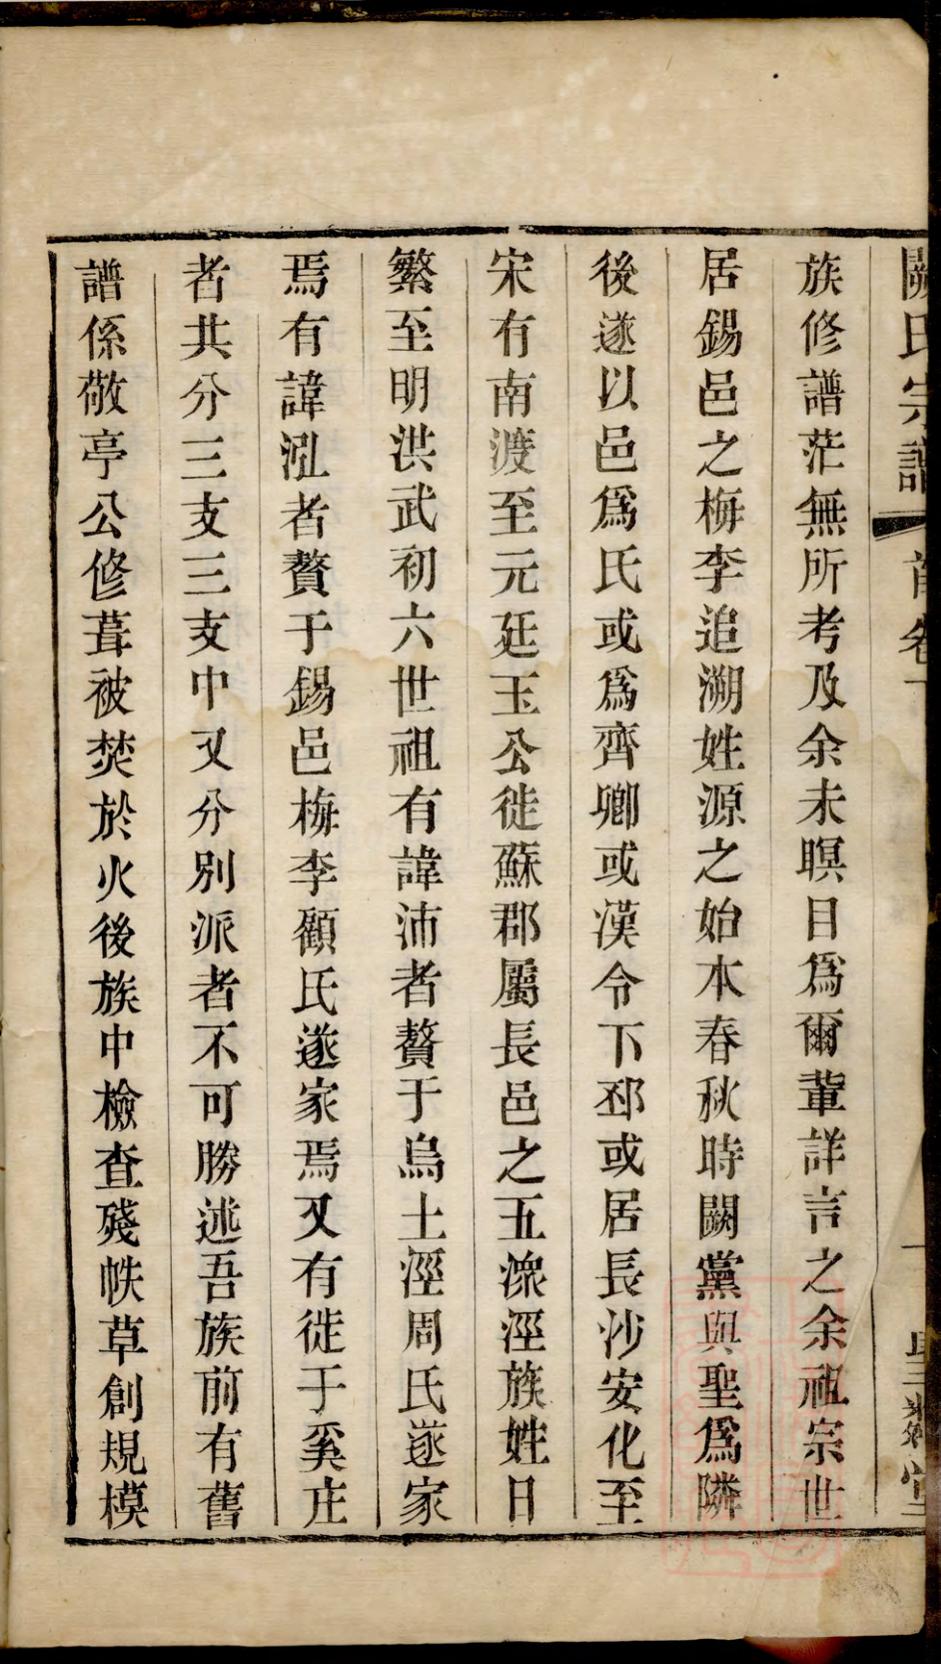 闕氏宗譜 首卷 一 聖鄰堂
族修譜茫無所考及余未瞑目爲爾輩詳言之余祖宗世
居錫邑之梅李追溯姓源之始本春秋時闕黨與聖爲隣
後遂以邑爲氏或爲齊卿或漢令下邳或居長沙安化至
宋有南渡至元廷玉公徙蘇郡屬長邑之五潨涇族姓日
繁至明洪武初六世祖有諱沛者贅于烏土涇周氏遂家
焉有諱泓者贅于錫邑梅李顧氏遂家焉又有徙于奚庄
者共分三支三支中又分別派者不可勝述吾族前有舊
譜係敬亭公修葺被焚於火後族中檢查殘帙草創規模